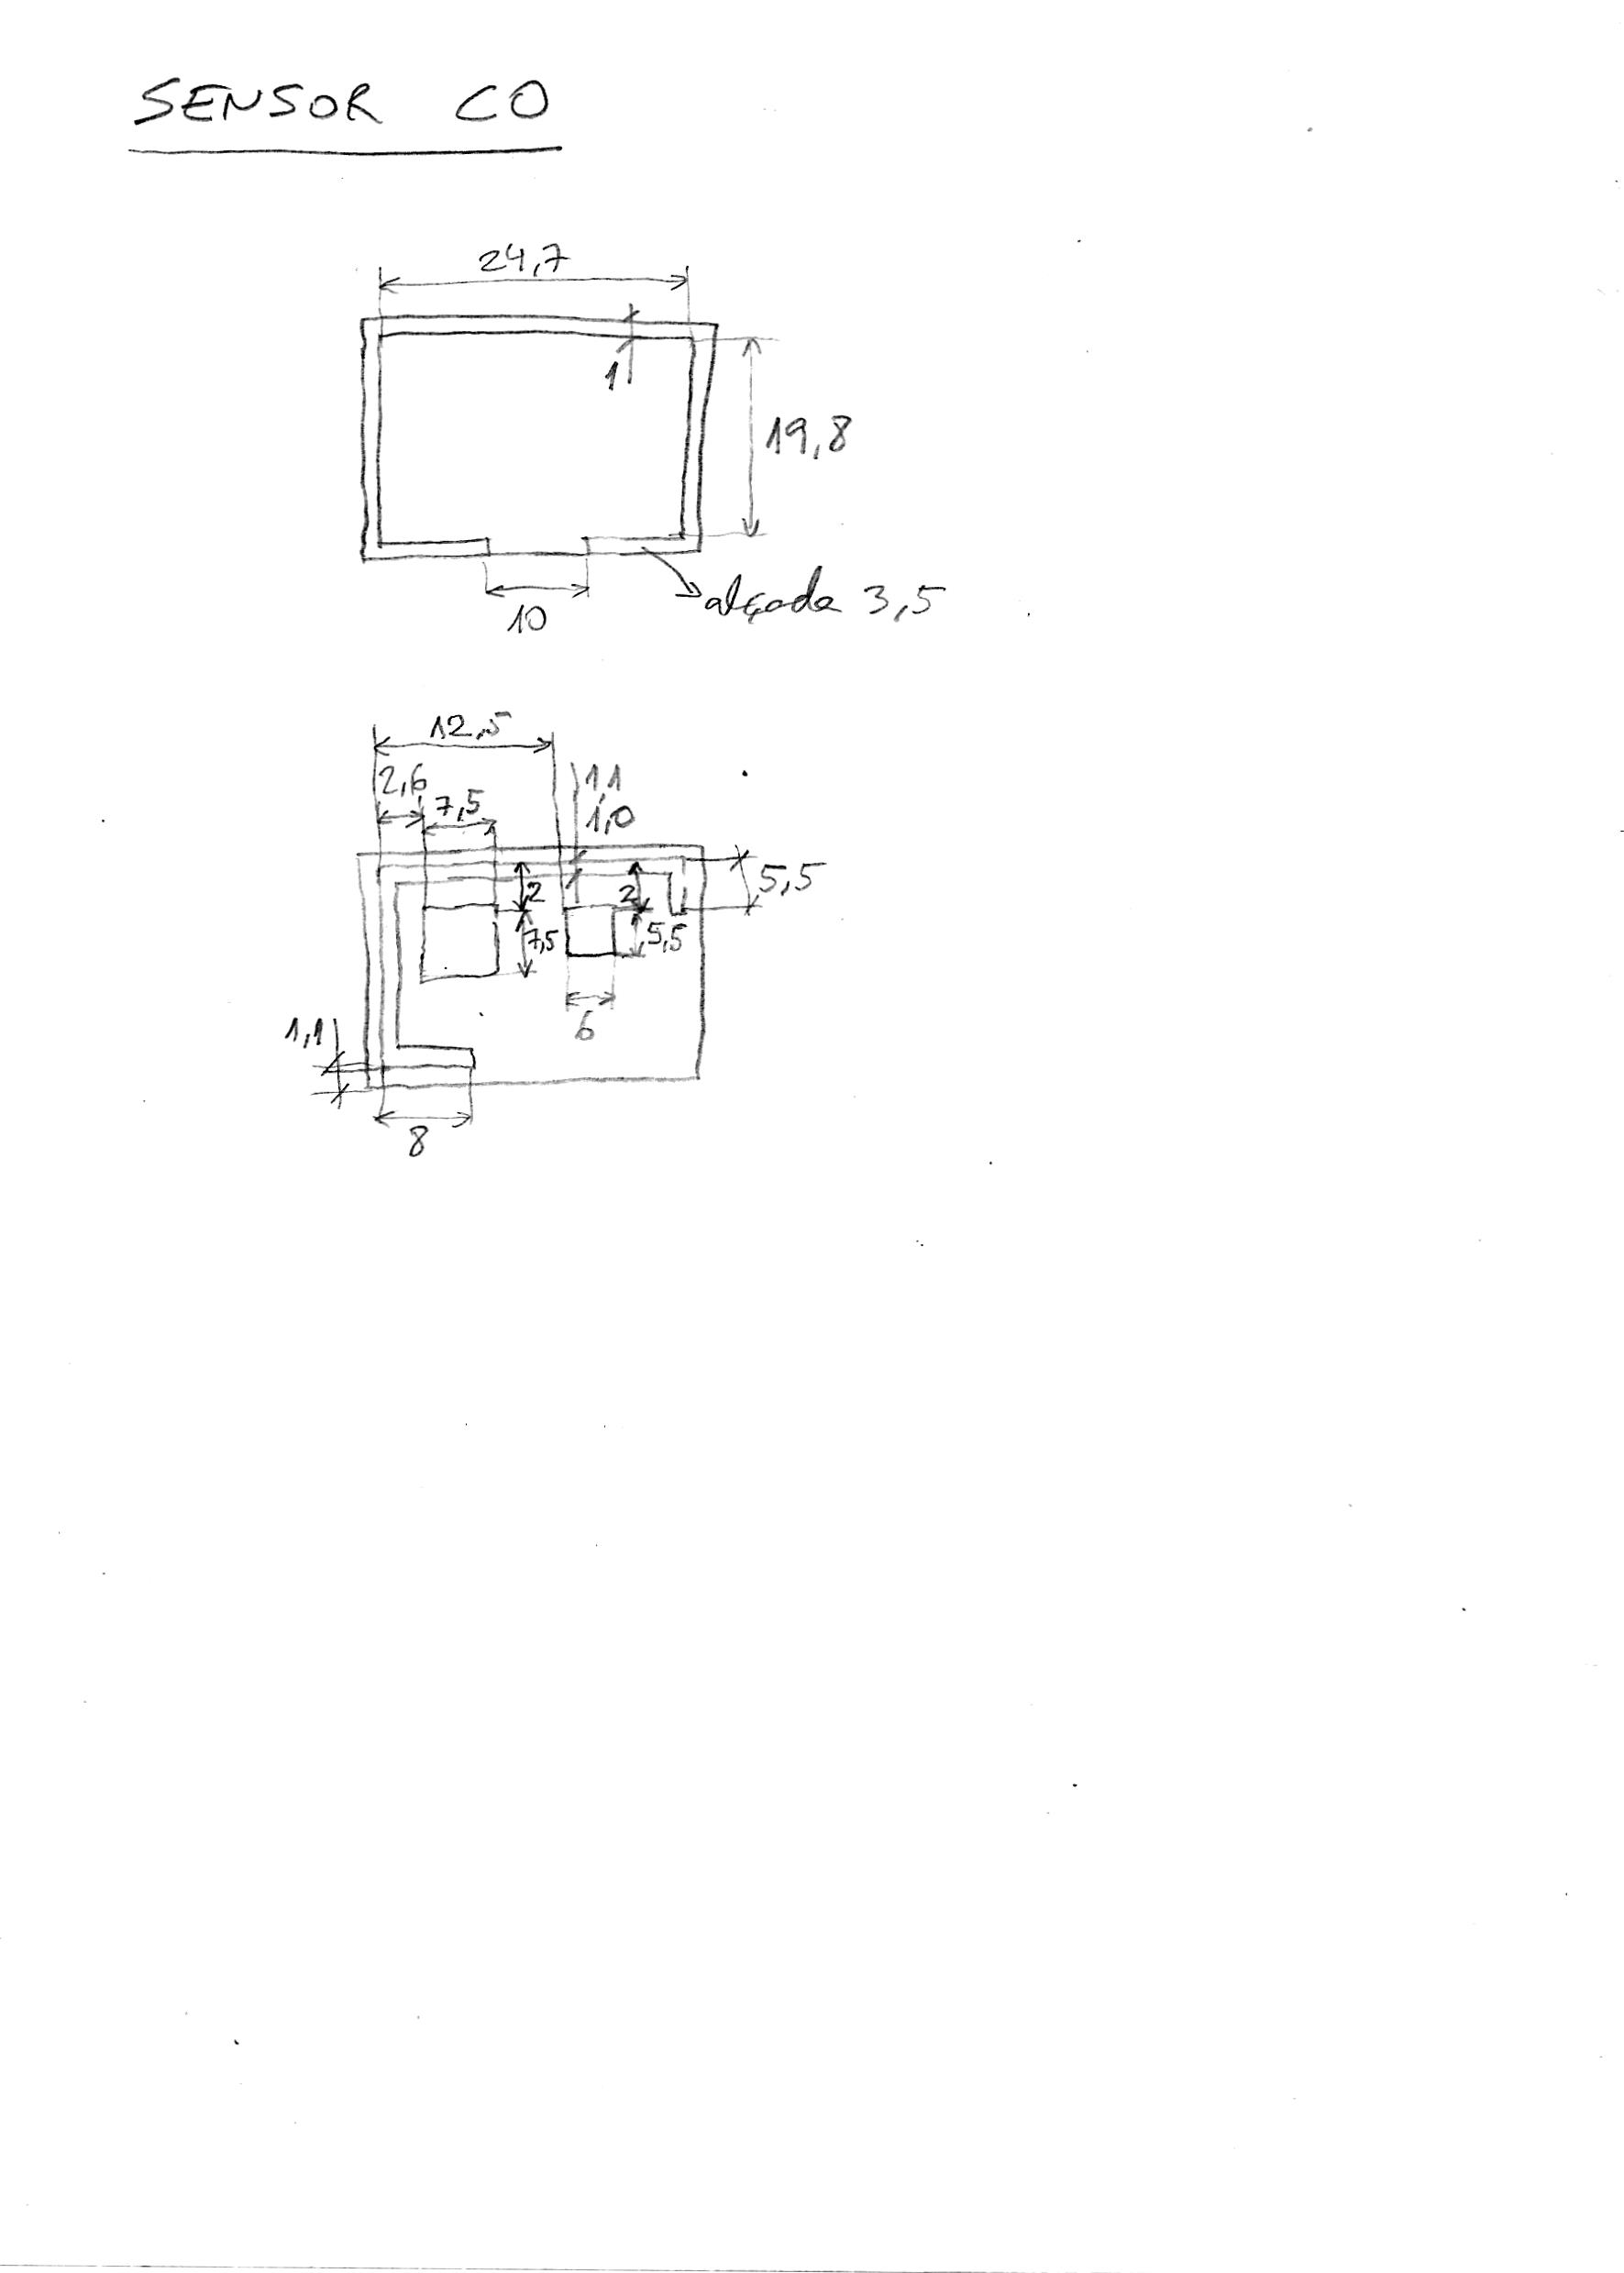 SENSOR CO
24,7
1
19,8
10
alçada 3,5
12,5
2,6
7,5
1,1
1,0
2
2
5,5
7,5
5,5
6
1,1
8